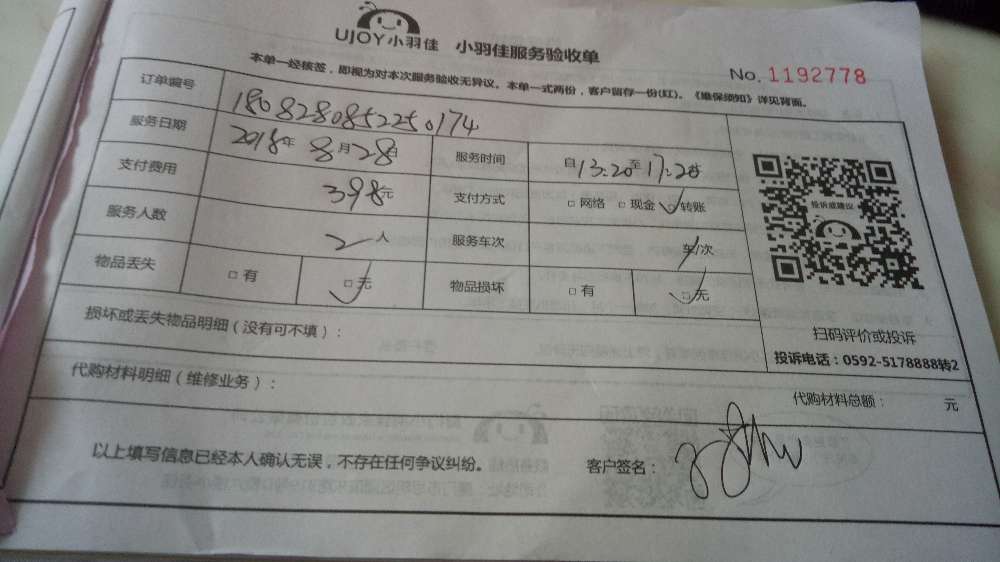 UJOY小羽佳 小羽佳服务验收单
No. 1192778
本单一经核签，即视为对本次服务验收无异议。本单一式两份，客户留存一份(红)。《维保须知》详见背面。
订单编号 1808280852250174
服务日期 2018年 8月28日 服务时间 自13:20至17:20
支付费用 398元 支付方式 □网络 □现金 □转账
服务人数 2人 服务车次 车/次
物品丢失 □有 □无 物品损坏 □有 □无
投诉或建议
扫码评价或投诉
投诉电话：0592-5178888转2
损坏或丢失物品明细（没有可不填）：
代购材料明细（维修业务）：
代购材料总额： 元
以上填写信息已经本人确认无误，不存在任何争议纠纷。 客户签名：